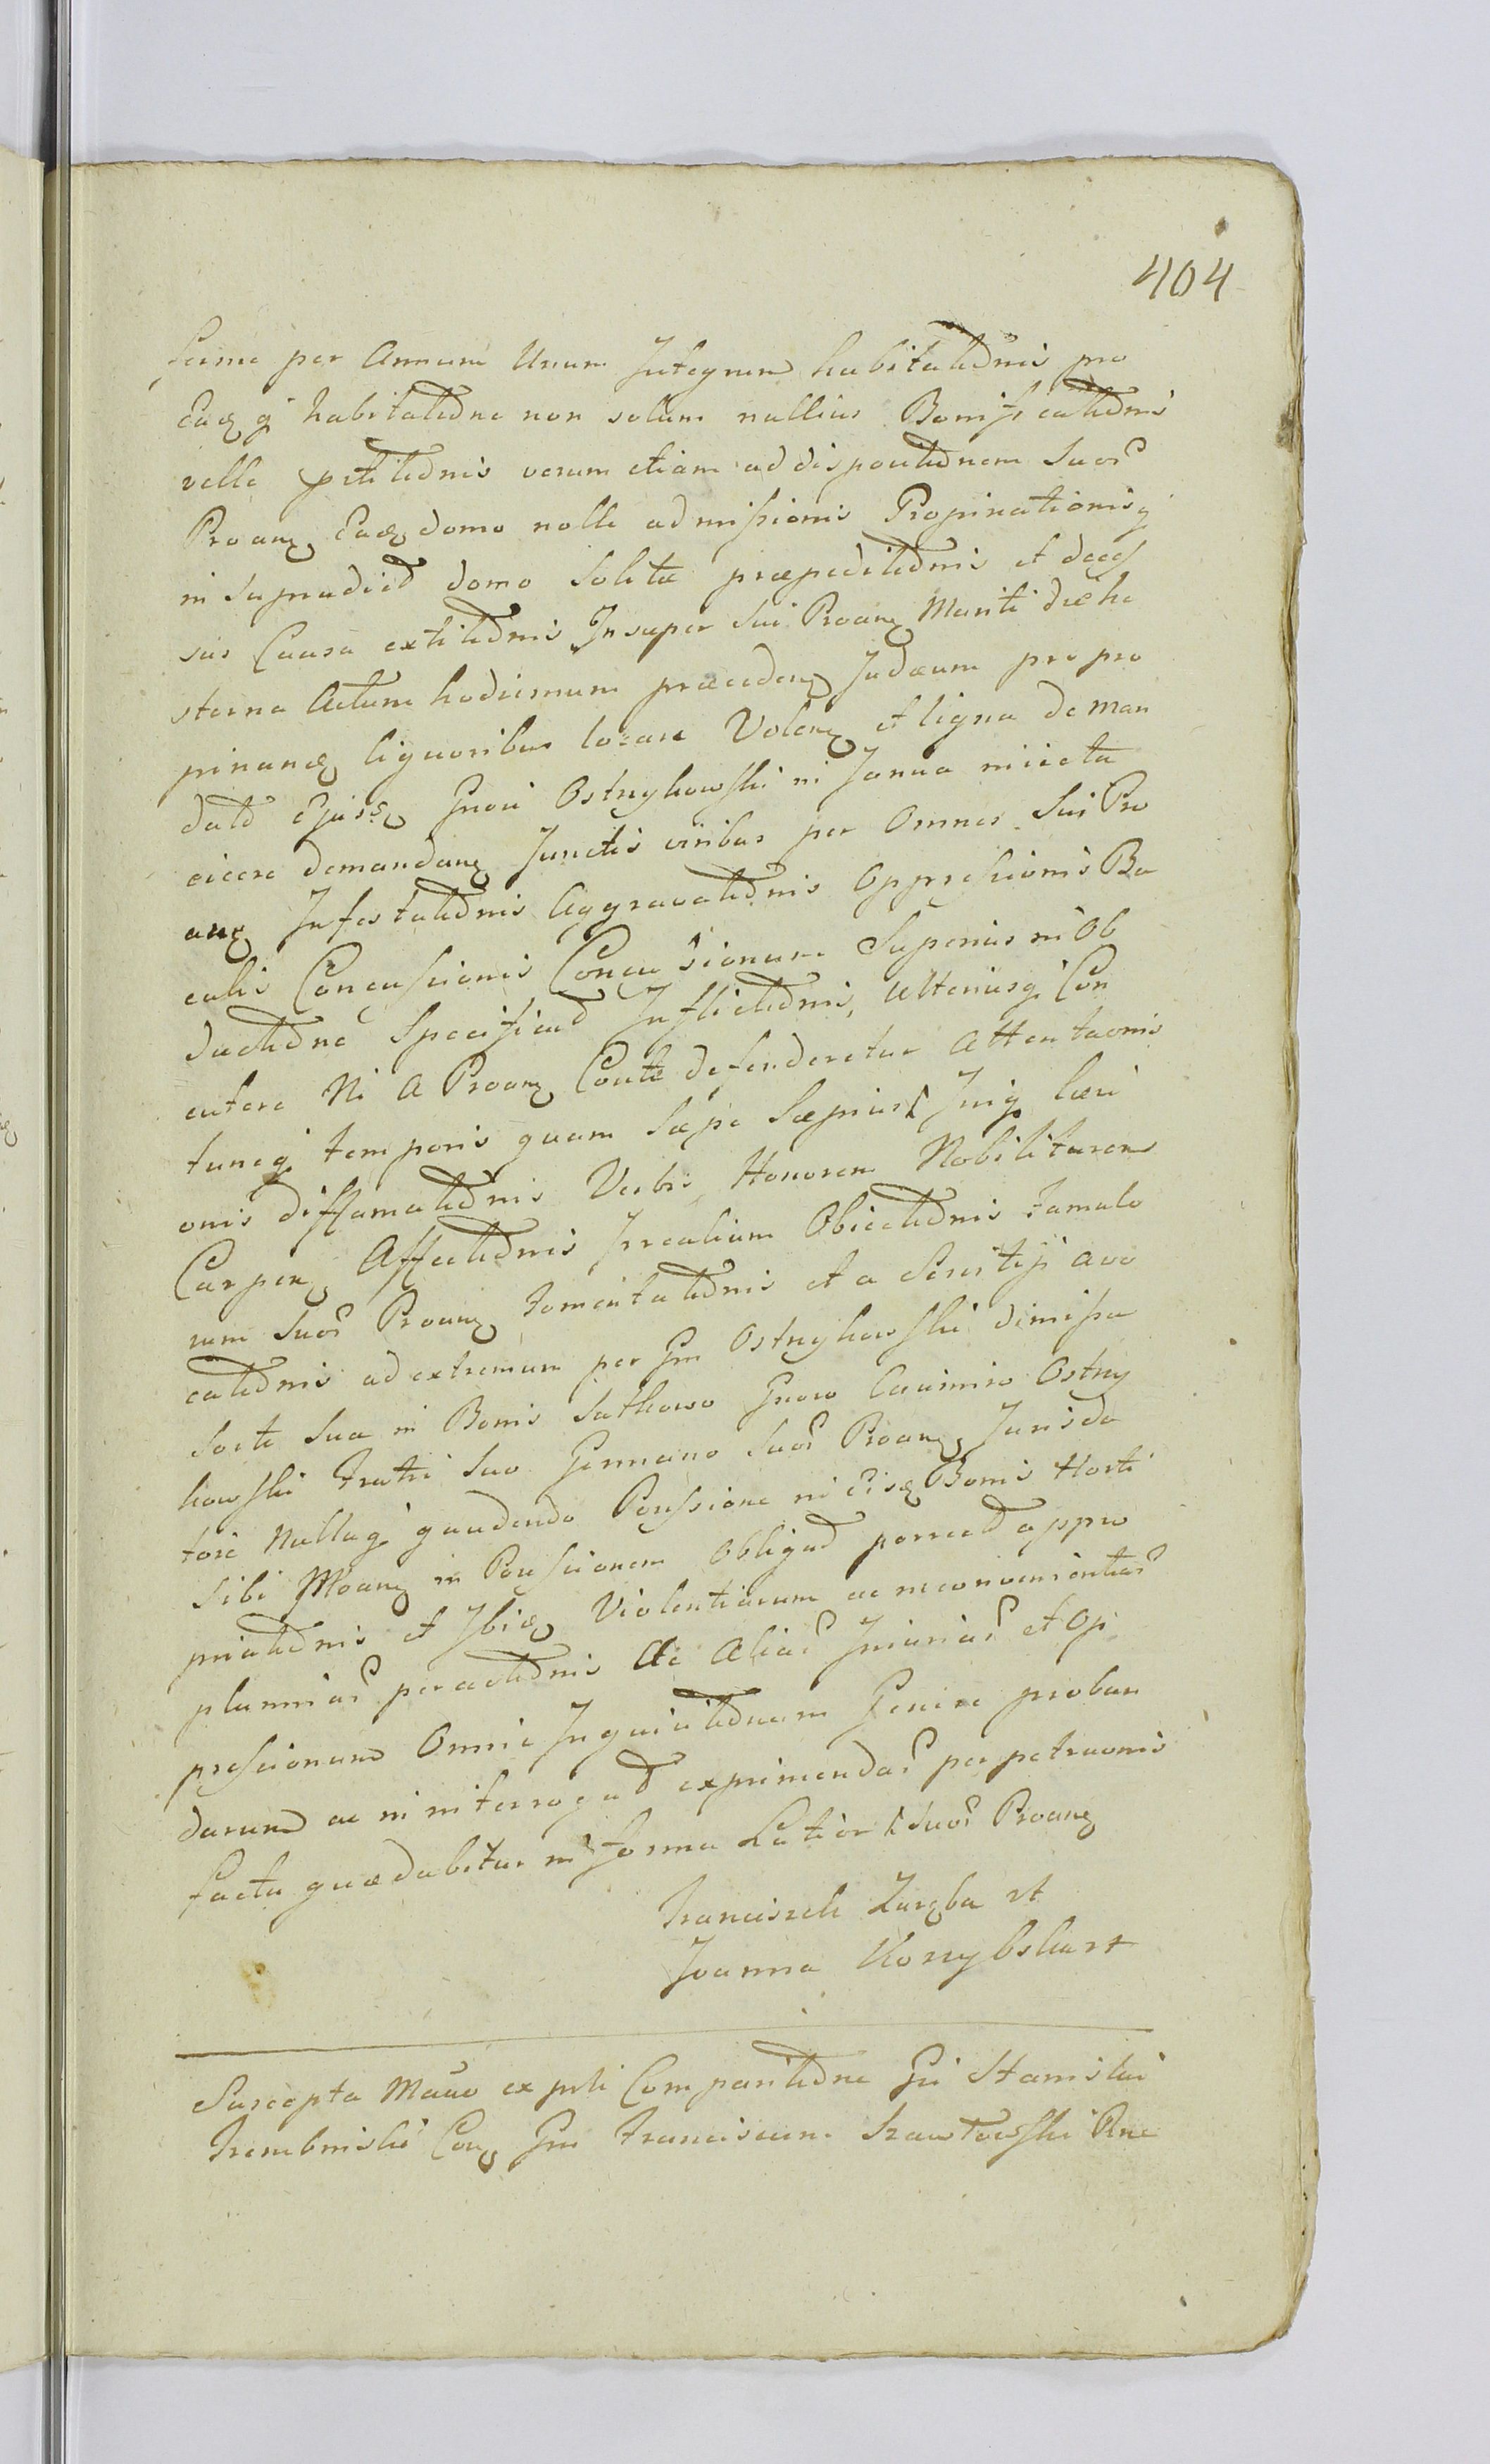 404
ferme per Annum Unum Integrum habitatiōnis pro
Eaq̨ q habitatiōne non solum nullius Bonificatiōnis
velle petitiōnis verum etiam ad dispositiōnem Suor
Proanę Eadę domo nolle admissionis Propinationisq
in supradict domo Solitæ præpeditiōnis et
sus Causa extitiōnis Insuper Sui Proanę Mariti die he
sterna Actum hodiernum præcedenę Judæum pro pro
pinandę liquoribus locare Volenę et ligna de man
dato Ejusdę Gnosi Ostrzykowski in Janua
eicere demandanę Junctis viribus per Omnes Sui Pro
anę Infestatiōnis Aggravatiōnis Oppressionis Ba
culis Concussionis Concussionum Superius in Ob
ductiōne Specificat Inflictiōnis, Ulteriusq Con
cutere Ni A Proanę Conte defenderetur Attentaonis
tuncq temporis quam Sæpe Sæpius
onis diffamatiōnis Verbis Honorem Nobilitarem
Carpen Affectiōnis Irrealium Obiectiōnis famulo
rum Suor Proanę Fomentatiōnis et a Servitijs avo
catiōnis ad extremum per Gm Ostrzykowski dimissa
Sorte Sua in Bonis Sutkowo Gnoso Casimiro Ostrzy
kowski Fratri Suo Germano Suor Proanę Jurisda
tore Nullaq gaudendo Possione in Eisdę Bonis Horti
Sibi Proanę in Possesionem Obligat porrect appro
priatiōnis et Ibidę Violentiarum ac inconvenientiar
plurimar peractiōnis Ac Aliar Iniuriar et Op
pressionum Omni Inquisitiōnum Genere proban
darum ac in interrogat exprimendar perpetraonis
facta quæ dabitur in forma Latior Suor Proanę
Franciszek Zaręba rt
Joanna Korzybska rt
Suscepta Mauo ex prli Comparitiōne Gsi Stanislai
Trembinski Conę Gm Franciscum